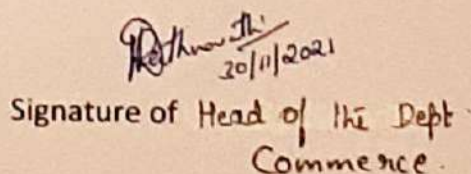 30/11/2021
Signature of Head of the Dept
Commerce.